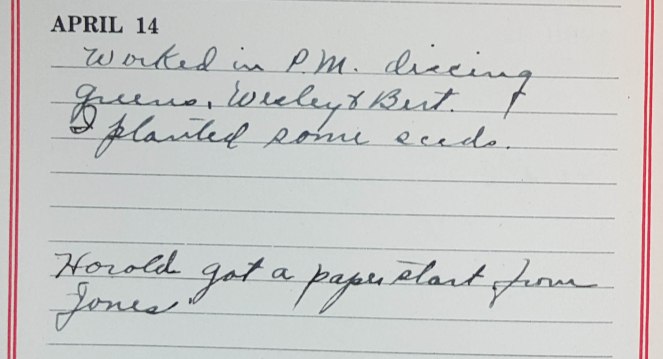 APRIL 14
Worked in P.M. discing
greens, Wesley & Bert.
I planted some seeds.
Horold got a paper start from
Jones